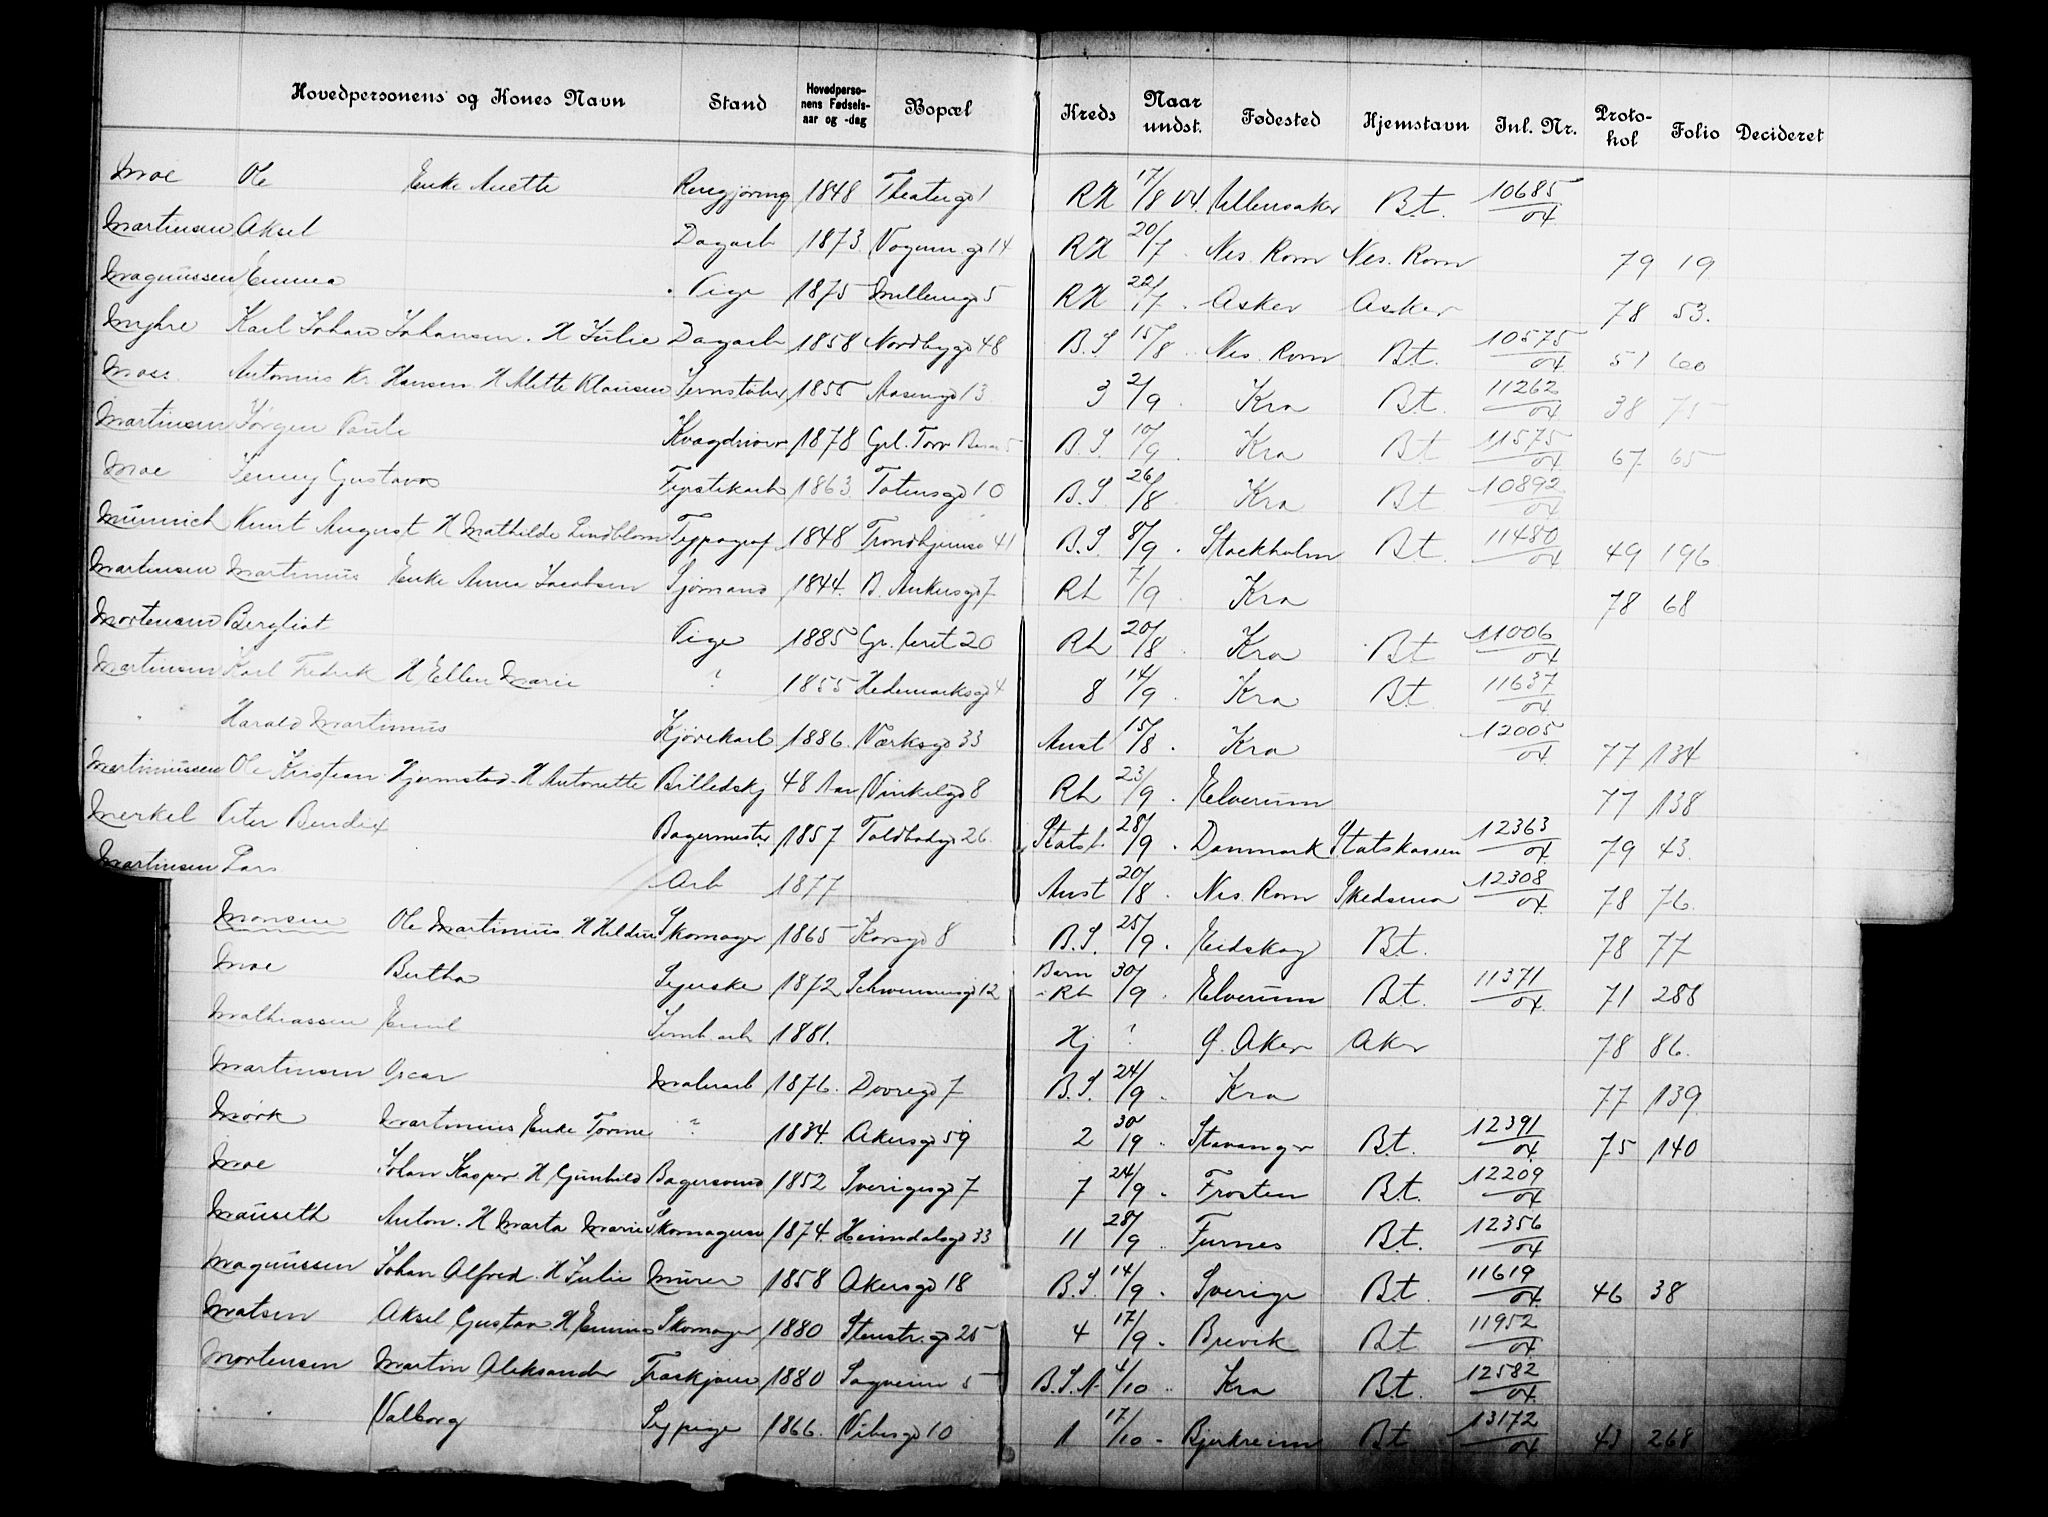 Hovedpersonens og Kones Navn Stand Hovedpersonens Fødselsaar og -dag Bopæl Kreds Naar undst. Fødested Hjemstavn Inl. Nr. Protokol Folio Decideret
Moe Ole Enke Anette Rengjøring 1848 Theatergd 1 RH 17/8 04. Ullensaker Bt. 10685/04
Martinsen Aksel Dagarb 1873 Vognm.gd 14 RH 20/7 Nes. Rom Nes. Rom 79 19
Magnussen Emma Pige 1875 Møllergd 5 RH 22/7 Asker Asker 78 53.
Myhre Karl Johan Johansen. H Julie Dagarb 1858 Nordbygd 48 B.S 15/8 Nes. Rom Bt. 10575/04 51 60
Moss Antonius Kr. Hansen. H Mette Klausen Jernstøber 1855 Aasengd 13 3 2/9 Kra Bt. 11262/04 38 75
Martinsen Jørgen Paule Kvægdriver 1878 Grl. Torv 5 B.S. 10/9 Kra Bt 11575/04 67 65
Moe Jenny Gustava Fyrstikarb 1863 Totensgd 10 B.S 26/8 Kra Bt 10892/04
Münnich Knut August H Mathilde Lindblom Typograf 1848 Trondhjemsv 41 B.S. 8/9 Stockholm Bt. 11480/04 49 196
Martinsen Martinius Enke Anna Jacobsen Sjømand 1844. B. Ankersgd 7 RL 7/9 Kra 78 68
Mortensen Bergliot Pige 1885 Gr. leret 20 RL 20/8 Kra Bt 11006/04
Martinsen Karl Fredrik H Ellen Marie ? 1855 Hedemarksgd 4 8 14/9 Kra Bt. 11637/04
" Harald Martinius Kjørekarl 1886. Værksgd 33 Aust 15/8 Kra 12005/04 77 134
Martiniussen Ole Kristian Hjermstad. H Antonette Billedskj 48 Aar Vinkelgd 8 RL 23/9 Elverum 77 138
Merkel Peter Bendix Bagermestr 1857 Toldbodgd 26 Statsl. 28/9 Danmark Statskassen 12363/04 79 43.
Martinsen Lars Arb 1877 Aust 20/8 Nes. Rom Skedsmo 12308/04 78 76.
Monsen Ole Martinius. H Heldine Skomager 1865 Korsgd 8 B.S. 25/9 Eidskog Bt. 78 77
Moe Bertha Syerske 1872 Schwensensgd 12 Barn RL 30/9 Elverum Bt. 11371/04 71 288
Mathiassen Emil Jernb arb 1881. Hj ? Ø. Aker Aker 78 86.
Martinsen Oscar Malerarb 1876. Dovregd 7 B.S. 24/9 Kra 77 139
Mørk Martinius Enke Torine ? 1834. Akersgd 59 2 30/9 Stavanger Bt. 12391/04 75 140
Moe Johan Kasper. H Gunhild Bagersvend 1852 Sverigesgd 7 7 24/9 Frosten Bt. 12209/04
Mauseth Anton. H Marta Marie Skomagersv 1874. Heimdalsgd 33 11 28/9 Furnes Bt. 12356/04
Magnussen Johan Alfred. H Julie Murer 1858 Akersgd 18 B.S. 14/9 Sverige Bt. 11619/04 46 38
Matsen Aksel Gustav. H Emma Skomager 1880 Stenstr.gd 25 4 17/9 Brevik Bt 11952/04
Mortensen Martin Aleksander 1880 Sagveien 5 B.S.A 4/10 Kra Bt. 12582/04
" Valborg Sypige 1866. Vibesgd 10 1 17/10 Bjerkreim Bt 13172/04 43 268